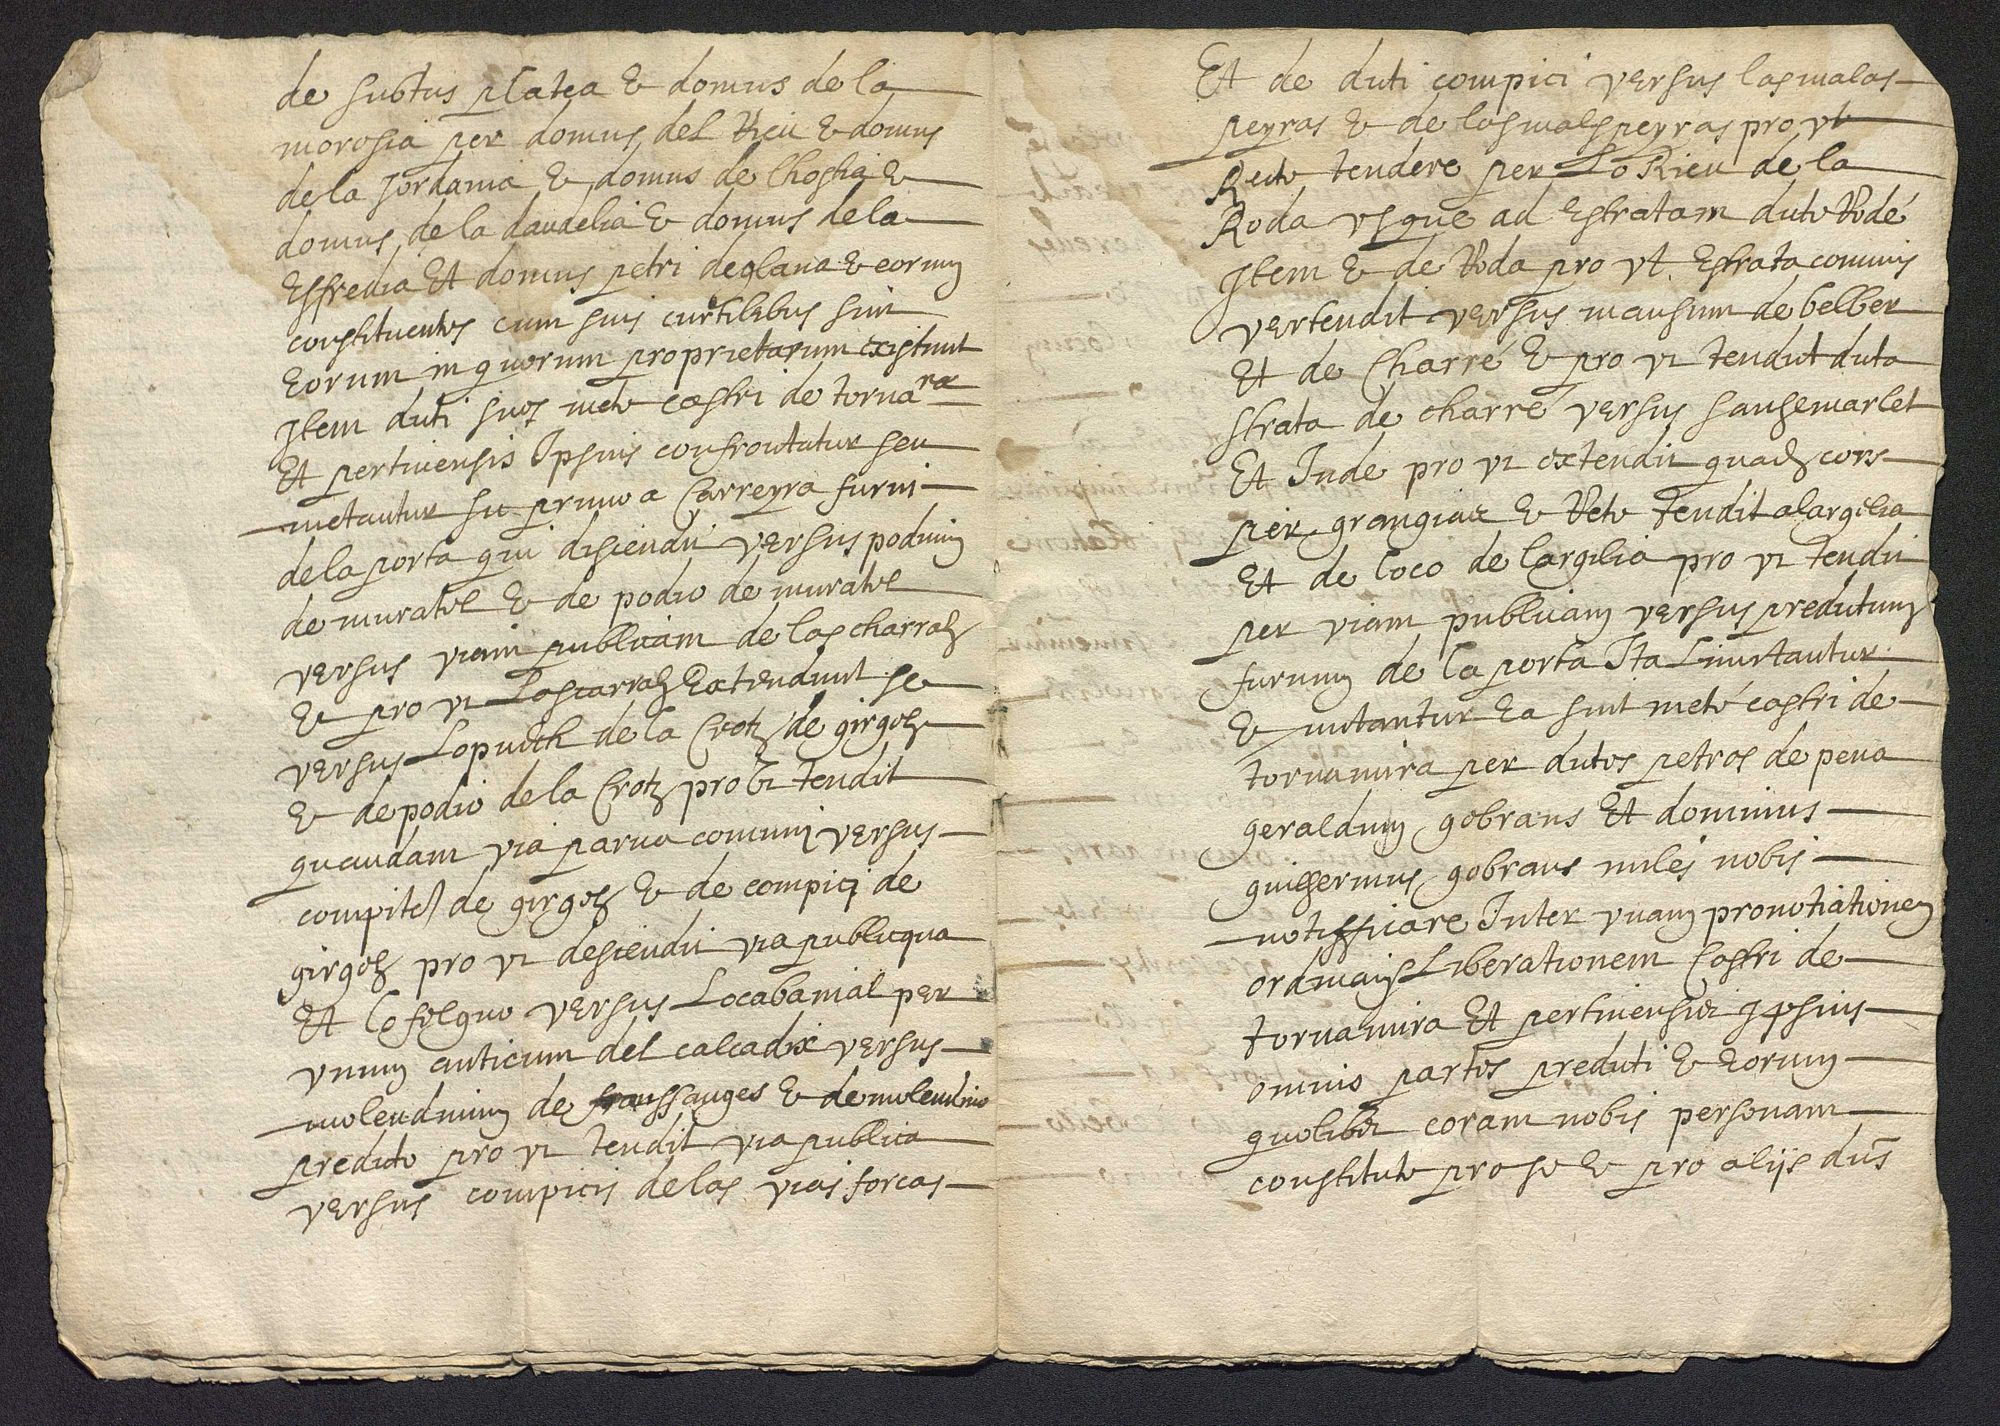 de subtus platea & domus de la
morosia per domus del Rieu & domus
de la Jordania & domus de Chostia &
domus de la daudelia & domus de la
Esfredia Et domus petri deglana & eorum
constituentes cum suis curtilibus sim
Eorum in quorum proprietarum existunt
Item duti suos mete castri de tornara
Et pertinensis Ipsius confrontatur seu
metantur su primo a Carreyra furni
de la porta qui disiendit versus podium
de muratel & de podio de muratel
versus viam publicam de las charral
& pro vt Loscarral Extendunt se
versus Lopuech de la Crotz de girgols
& de podio de la Crotz pro vt tendit
quandam via parva comuni versus
compites de girgols & de compici de
girgols pro vt desiendit via publicqua
Et Co felguo versus Locabanial per
vnum anticum del calcadix versus
molendinum de franssanges & de molendino
preduto pro vt tendit via publica
versus compicis de las vias forcas
Et de duti compici versus las malas
peyras & de las mals peyras pro vt
Recte tendere per Lo Rieu de la
Roda vsque ad Estratam duto Rodé
Item & de Roda pro vt Estrata comunis
vertendit versus mansum de belber
Et de Charré & pro vt tendit duta
strata de charré versus sansemarlet
Et Inde pro vt extendit quads cors
per grangiae & Rete tendit alargilia
Et de loco de largilia pro vt tendit
per viam publicam versus predutum
furnum de la porta Ita Limitantur
& mitantur Ea sunt meté castri de
tornamira per dutos petros de pena
geraldum gobrans Et dominus
guillermus gobrans milés nobis
notifficare Inter vnam pronotiationem
ordinaijs Liberationem Castri de
tornamira Et pertinensia Ipsius
omnis partes preduti & Eorum
quolibet coram nobis personam
constitute pro se & pro alijs dus